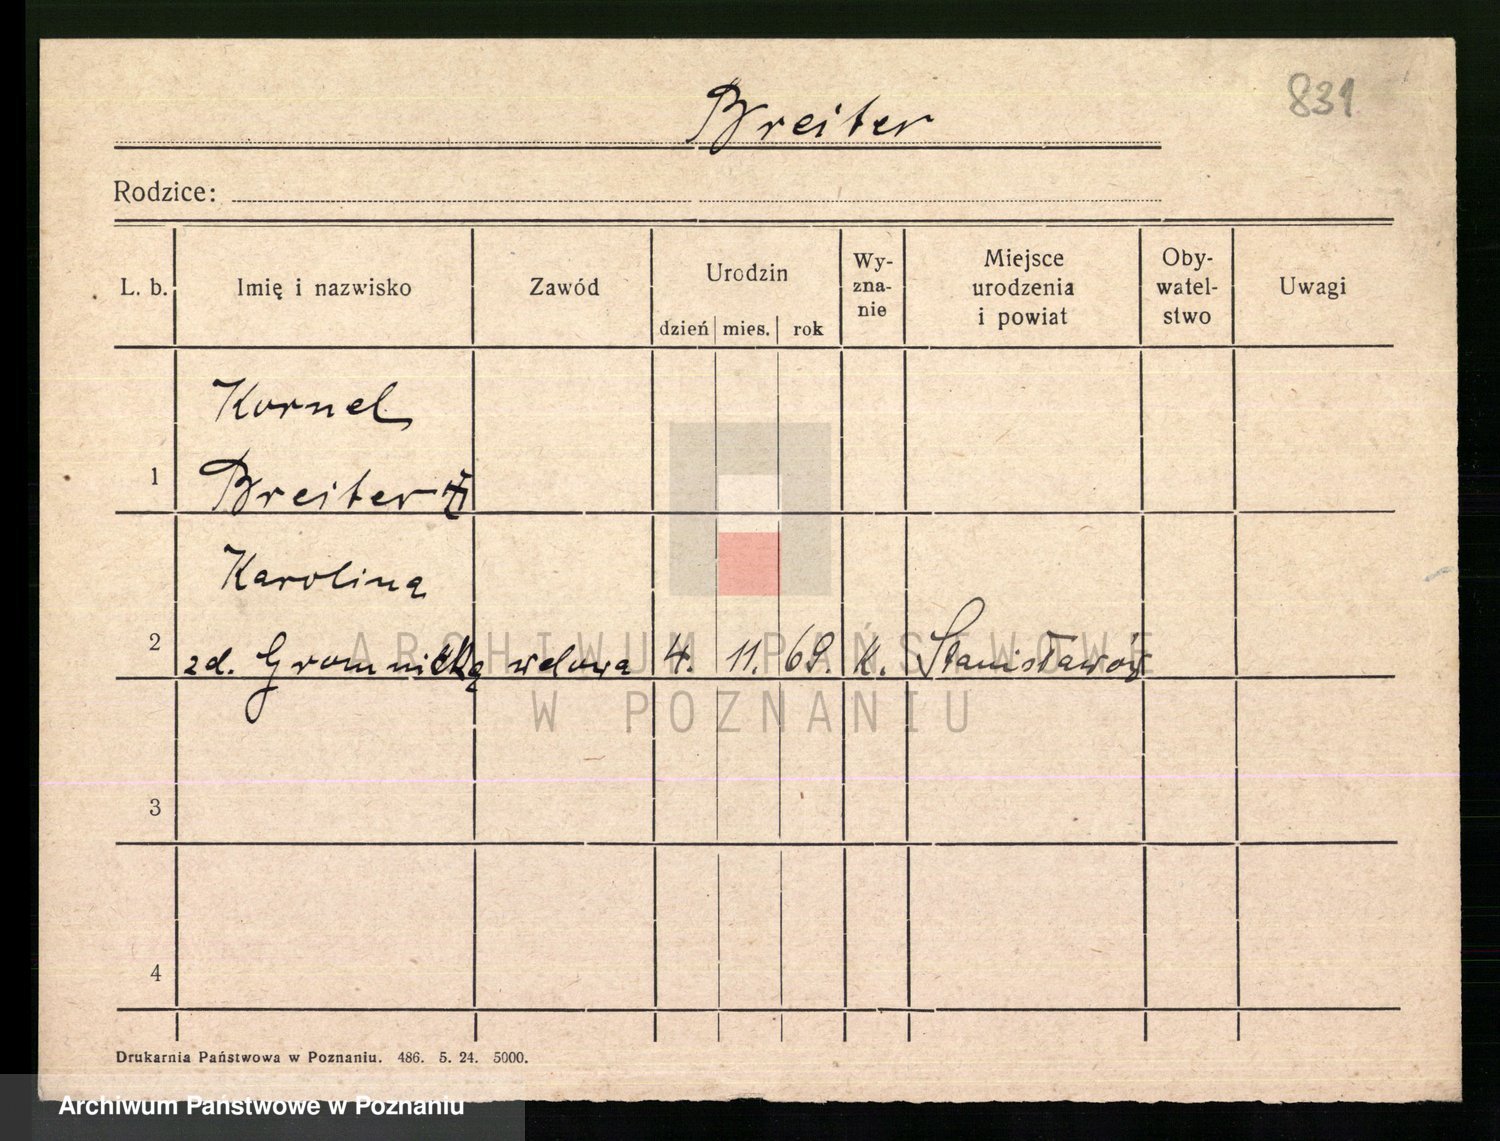 831
Breiter
Rodzice:
L. b.
Imię i nazwisko
Zawód
Urodzin
dzień
mies.
rok
Wy-
zna-
nie
Miejsce
urodzenia
i powiat
Oby-
watel-
stwo
Uwagi
Kornel
1 Breiter
Karolina
2 zd. Gromnicka wdowa 4. 11. 69. K. Stanisławów
3
4
ARCHIWUM PAŃSTWOWE
W POZNANIU
Drukarnia Państwowa w Poznaniu. 486. 5. 24. 5000.
Archiwum Państwowe w Poznaniu